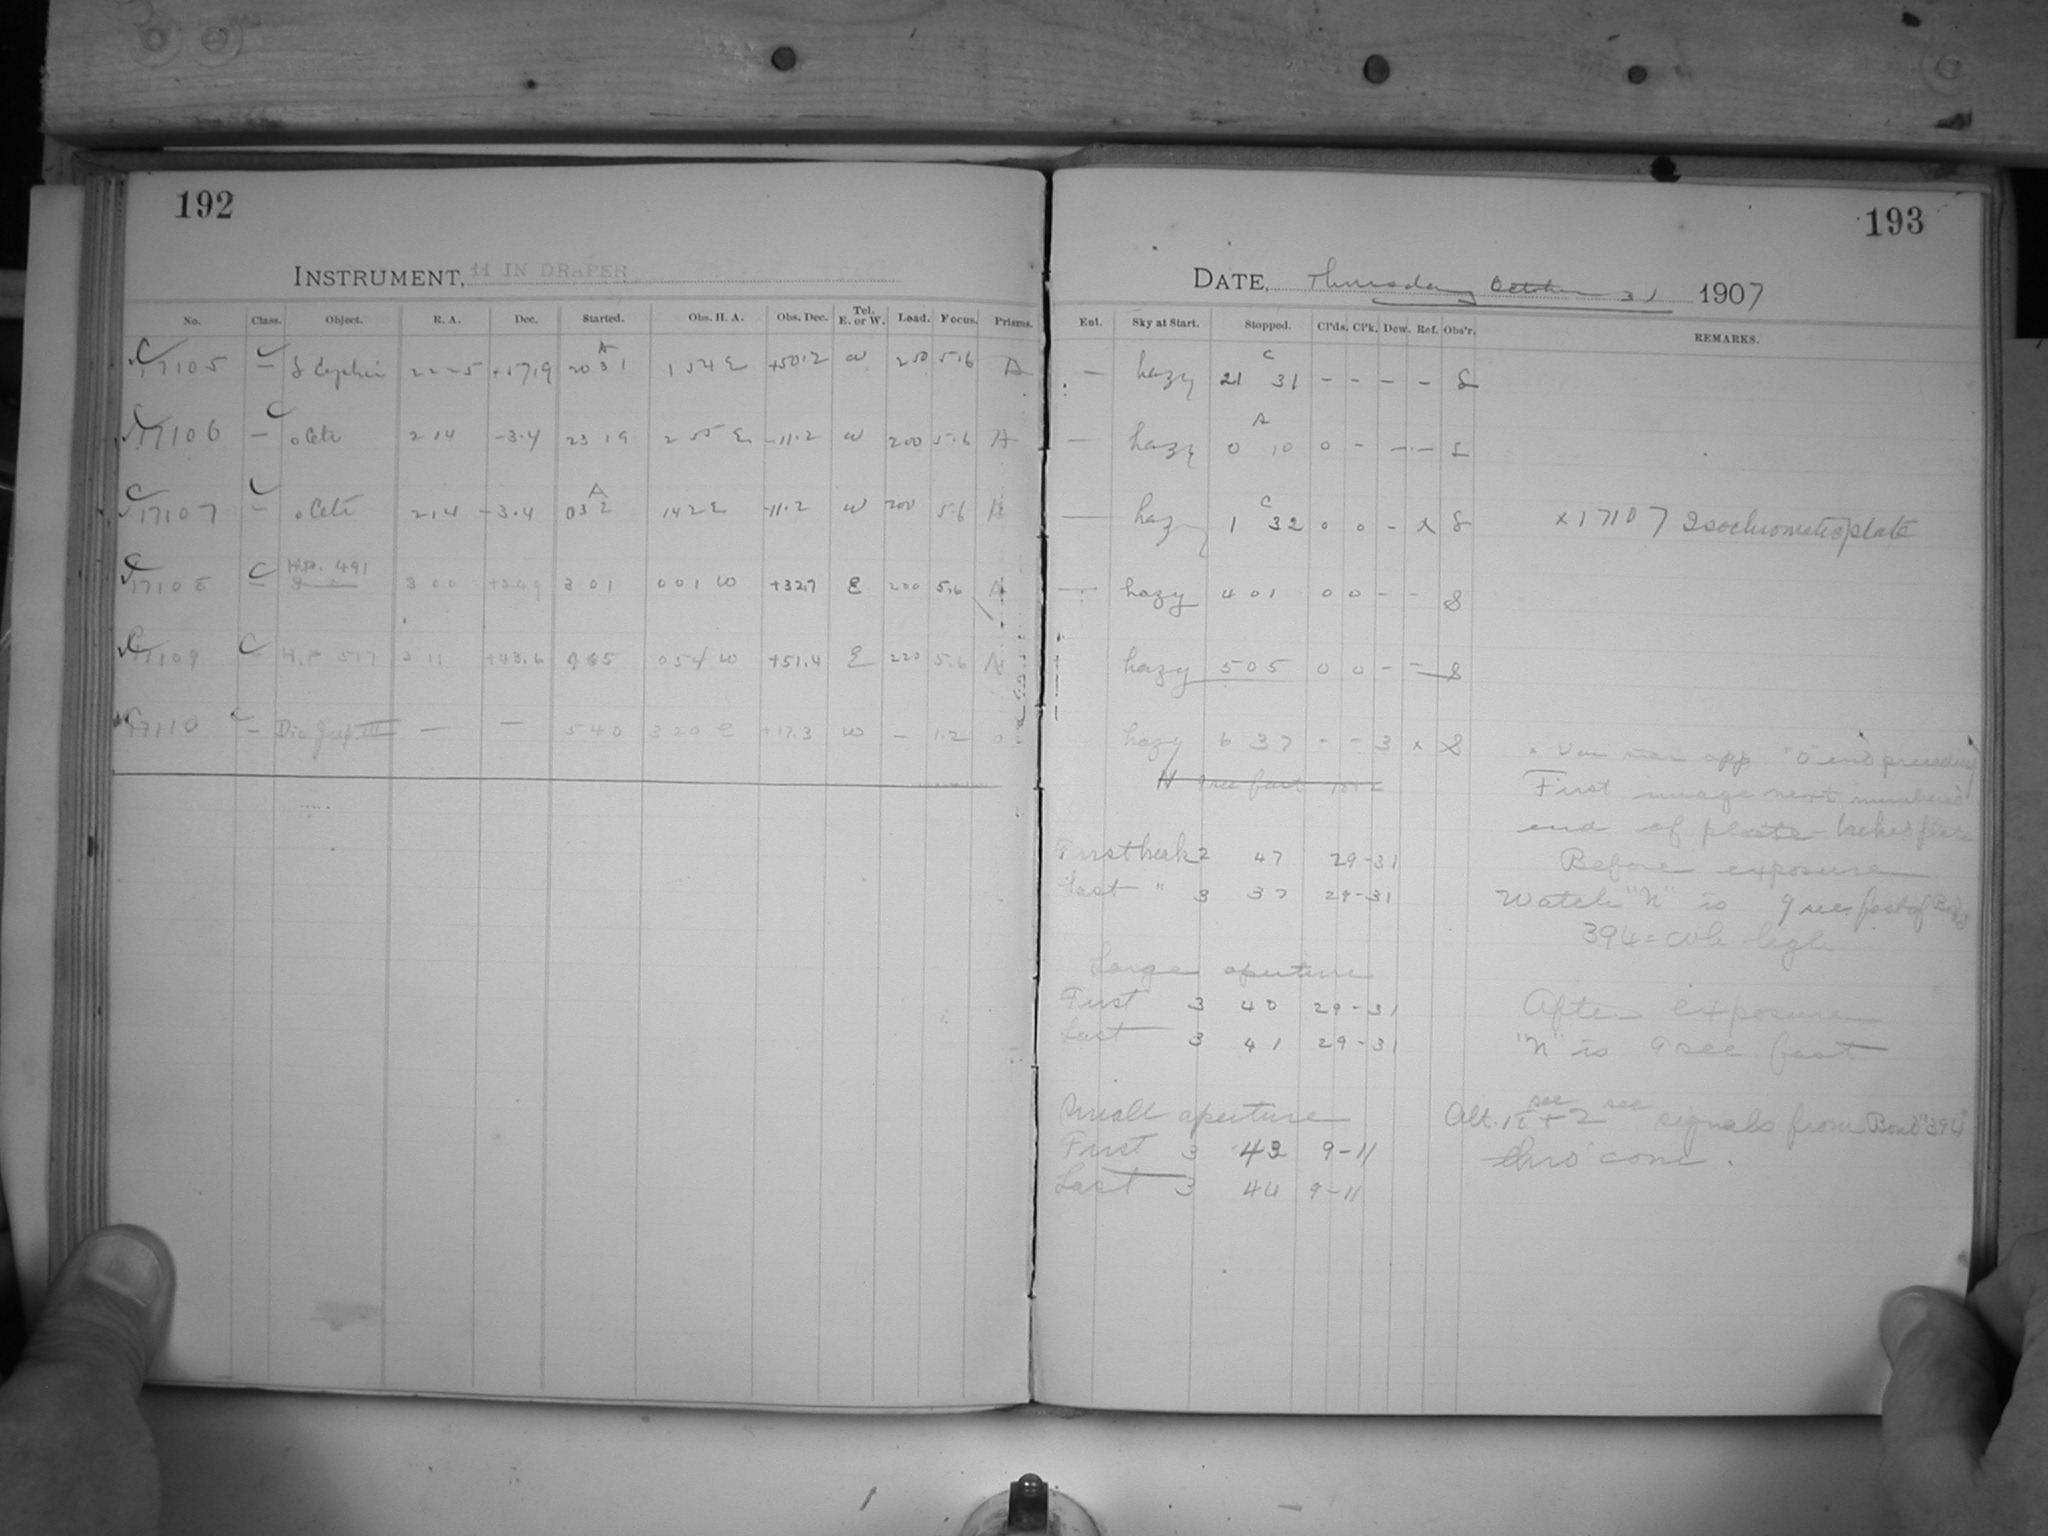 192
INSTRUMENT, 11 IN DRAPER
No. Class. Object. R. A. Dec. Started. Obs. H. A. Obs. Dec. Tel. E. or W. Load. Focus. Prisms.
17105 — δ Cephei 22 25 +57.9 20 31 1 54 E +50.2 W 250 5.6 A
17106 — o Ceti 2 14 -3.4 23 19 2 55 E -11.2 W 200 5.6 A
17107 — o Ceti 2 14 -3.4 0 32 1 42 E -11.2 W 200 5.6
17108 — H.P. 491 3 00 3 01 0 01 W +32.7 E 200 5.6 A
17109 — H.P. 517 3 11 +43.6 0 54 W +51.4 E 220 5.6 A
17110 — Dis Jup III — — 5 40 3 20 E +17.3 W — 1.2 0
193
DATE, Thursday October 31 1907
Ent. Sky at Start. Stopped. Cl'ds. Cl'k. Dew. Ref. Obs'r. REMARKS.
— hazy 21 31 - - - - S
— hazy 0 10 0 - - - S
— hazy 1 32 0 0 - x S x 17107 Isochromatic plate
— hazy 4 01 0 0 - - S
hazy 5 05 0 0 - - S
hazy 6 37 - - 3 x S
app "0" end preceding
First image next numbered
end of plate - backed plate
First break 2 47 29-31
Before exposure
Last " 3 37 29-31
Watch "N" is 9 sec. fast of Bond
394 =
Large aperture
First 3 40 29-31
After exposure
Last 3 41 29-31
"N" is 9 sec. fast
Small aperture
Alt. 12 sec + 2 sec signals from Bond "394"
First 3 43 9-11
thro' conc.
Last 3 44 9-11